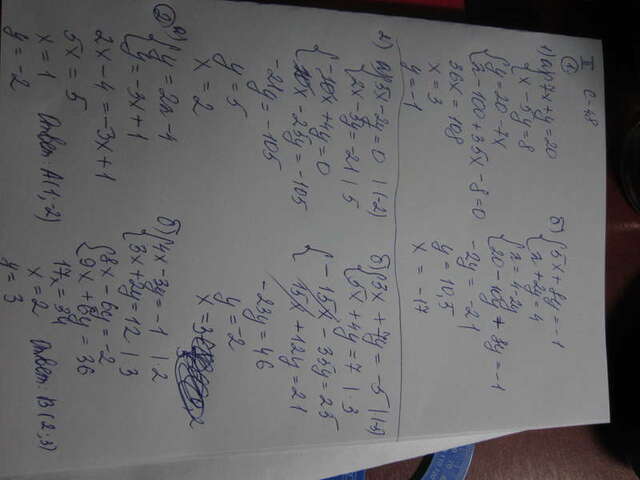 С-48
II
①
1) а) { 7x + y = 20
x - 5y = 8
{ y = 20 - 7x
x - 100 + 35x - 8 = 0
36x = 108
x = 3
y = -1
б) { 5x + 8y = -1
x + 2y = 4
{ x = 4 - 2y
20 - 10y + 8y = -1
-2y = -21
y = 10,5
x = -17
2) а) { 5x - 2y = 0 | (-2)
2x - 3y = -21 | 5
{ -10x + 4y = 0
10x - 25y = -105
-21y = -105
y = 5
x = 2
б) { 3x + 7y = -5 | (-5)
5x + 4y = 7 | 3
{ -15x - 35y = 25
15x + 12y = 21
-23y = 46
y = -2
x = 3
②
а) { y = 2x - 4
y = -3x + 1
2x - 4 = -3x + 1
5x = 5
x = 1 Ответ: A(1;-2)
y = -2
б) { 4x - 3y = -1 | 2
3x + 2y = 12 | 3
{ 8x - 6y = -2
9x + 6y = 36
17x = 34
x = 2 Ответ: B(2;3)
y = 3